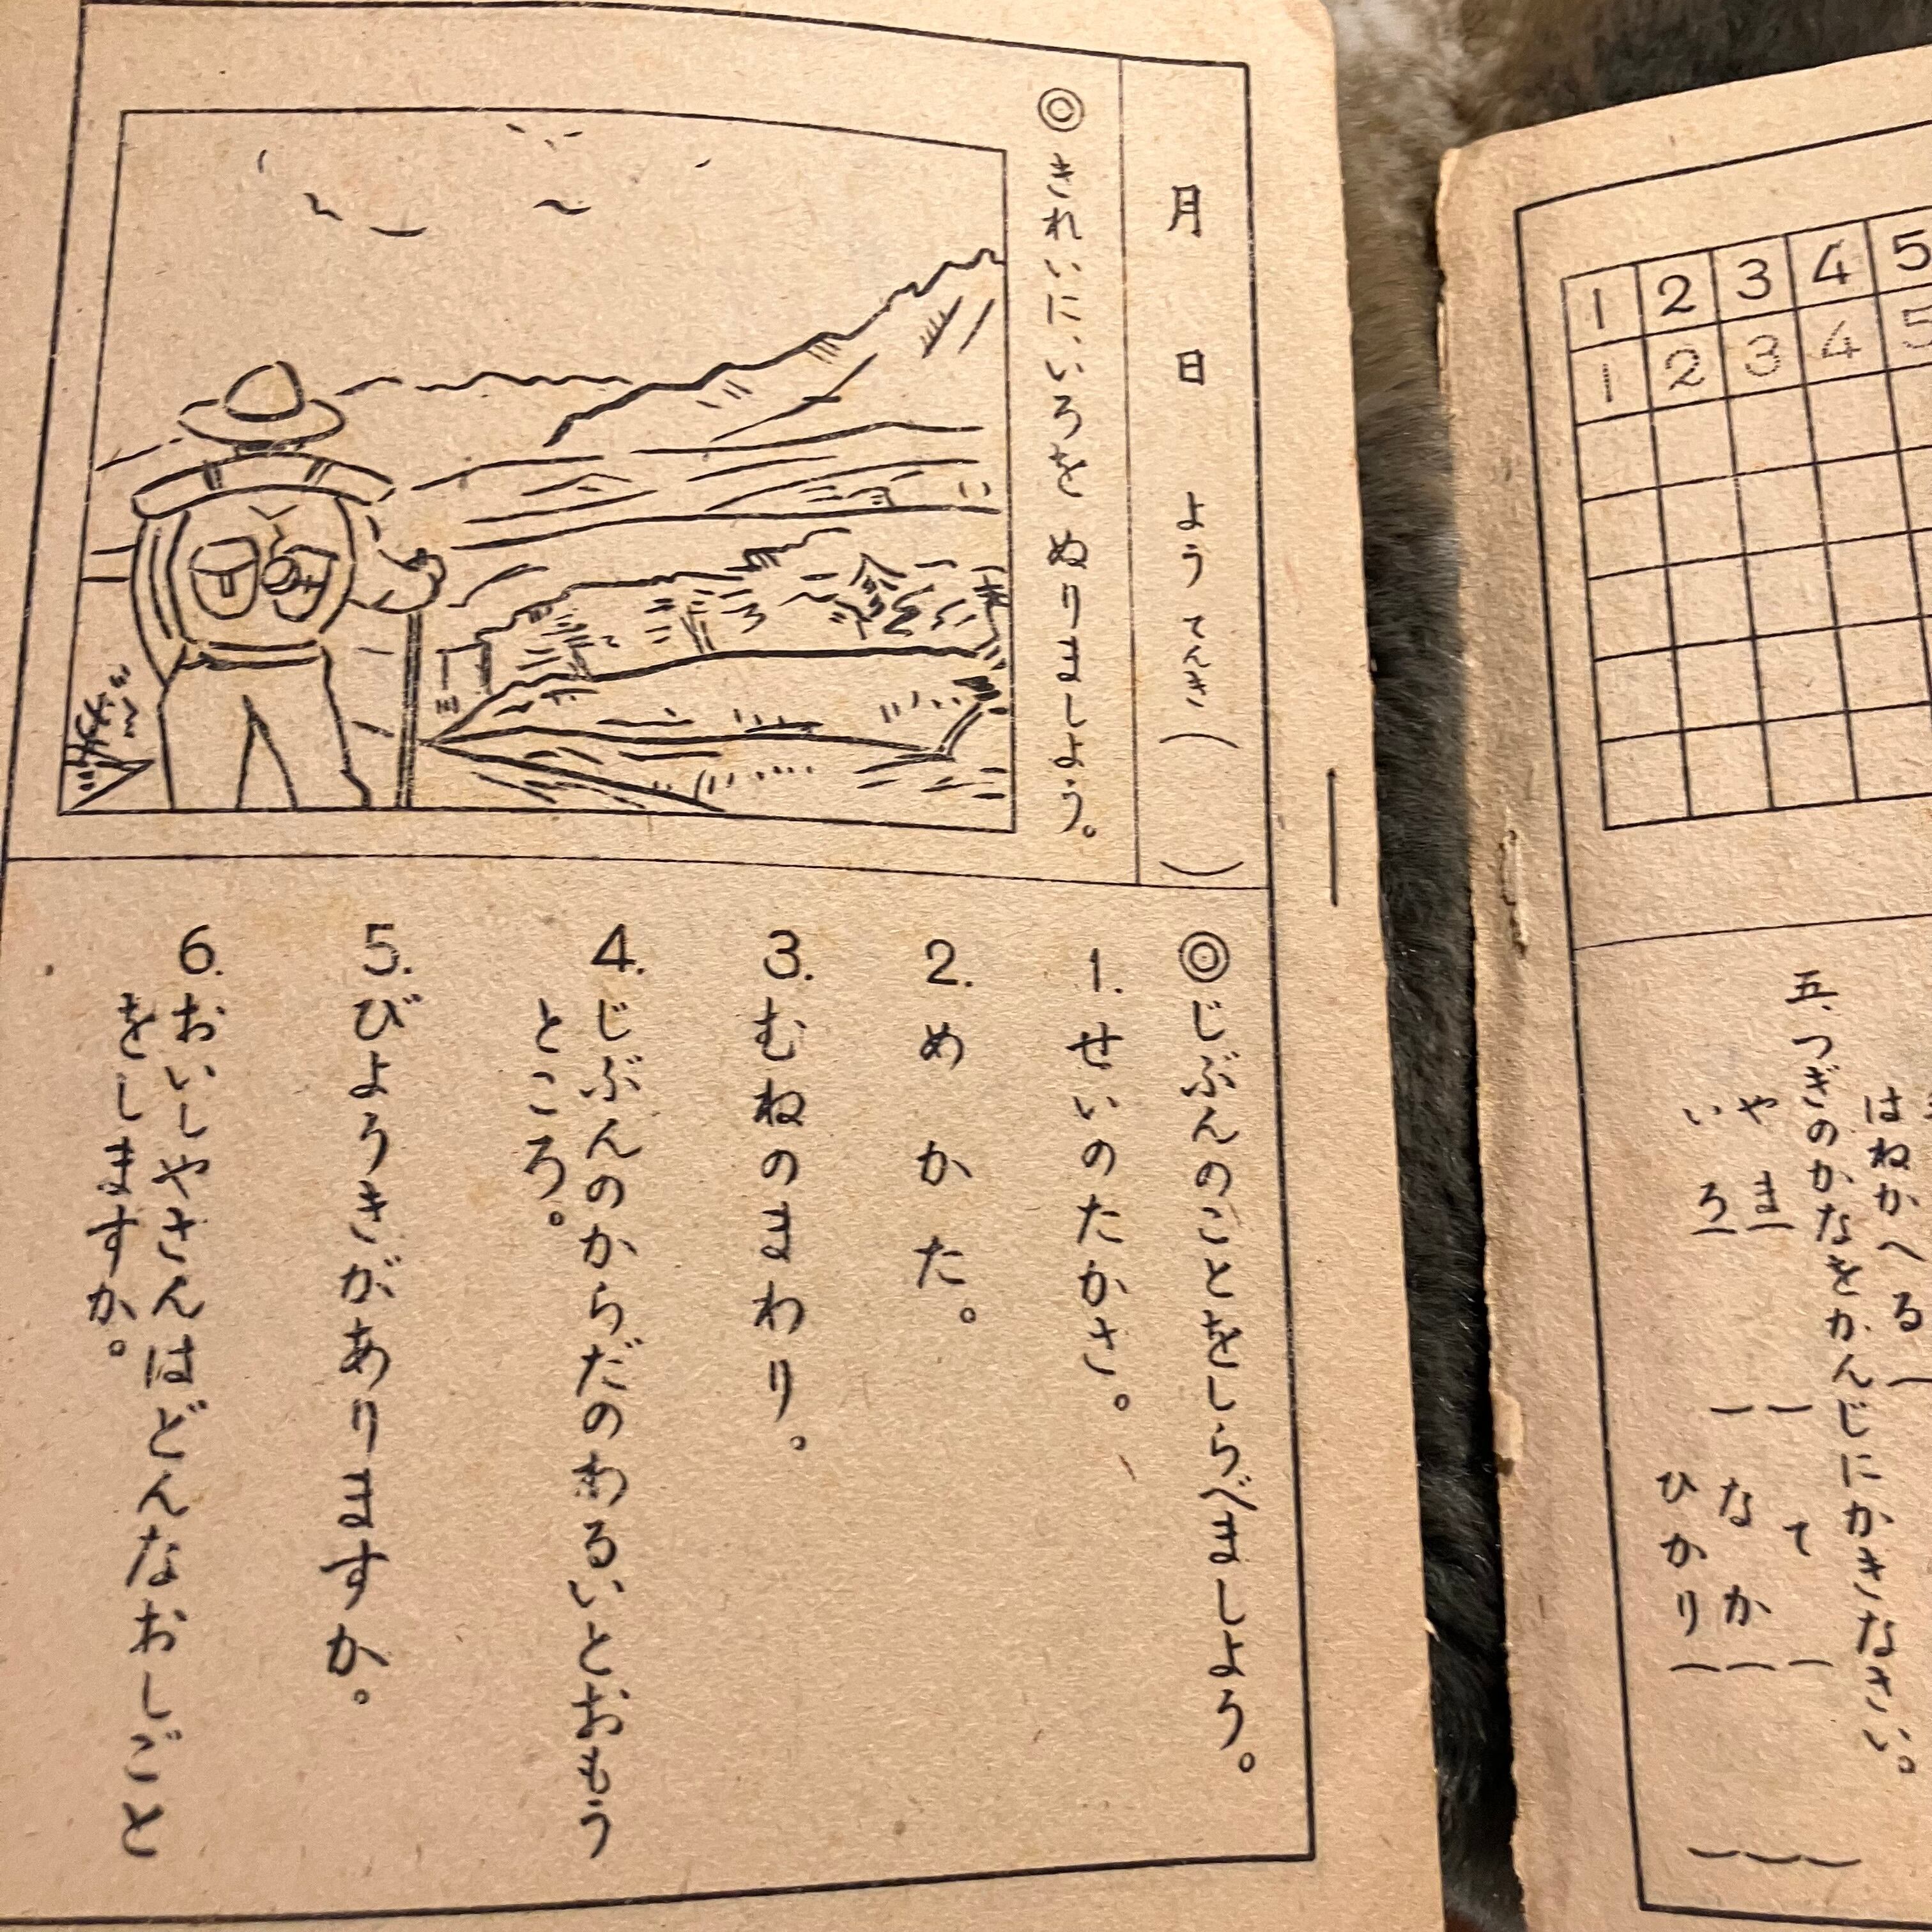 月 日 よう てんき( )
◎きれいにいろを ぬりましよう。
◎じぶんのことをしらべましよう。
1. せいのたかさ。
2. めかた。
3. むねのまわり。
4. じぶんのからだのわるいとおもう
ところ。
5. びようきがありますか。
6. おいしやさんはどんなおしごと
をしますか。
1 2 3 4 5
1 2 3 4 5
はねかへる
五、つぎのかなをかんじにかきなさい。
やま て
いろ なか
ひかり